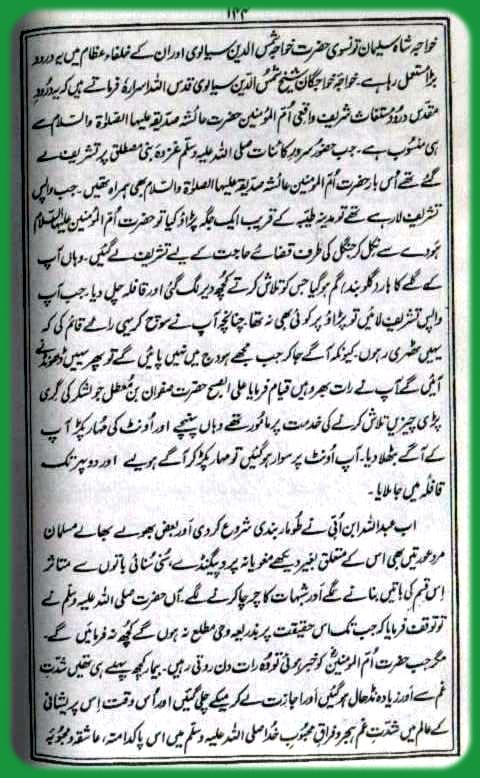 ۱۴۴
خواجہ شاہ سلیمان تونسوی حضرت خواجہ شمس الدین سیالوی اور ان کے خلفاء عظام میں یہ درود
بڑا مستعمل رہا ہے۔ خواجہ خواجگان شیخ شمس الدین سیالوی قدس اللہ اسرارہٗ فرماتے ہیں کہ یہ درودِ
مقدس درود مستغاث شریف واقعی اُم المؤمنین حضرت عائشہ صدیقہ علیہا الصلاۃ والسلام سے
ہی منسوب ہے۔ جب حضور سرورِ کائنات صلی اللہ علیہ وسلم غزوہ بنی مصطلق پر تشریف لے
گئے تھے اُس بار حضرت اُم المؤمنین عائشہ صدیقہ علیہا الصلاۃ والسلام بھی ہمراہ تھیں۔ جب واپس
تشریف لا رہے تھے تو مدینہ طیبہ کے قریب ایک جگہ پڑاؤ کیا تو حضرت اُم المؤمنین علیہا السلام
ہودے سے نکل کر جنگل کی طرف قضائے حاجت کے لیے تشریف لے گئیں۔ وہاں آپ
کے گلے کا ہار (گلوبند) گم ہو گیا جس کو تلاش کرتے کچھ دیر لگ گئی اور قافلہ چل دیا۔ جب آپ
واپس تشریف لائیں تو پڑاؤ پر کوئی بھی نہ تھا چنانچہ آپ نے سوچ کر یہی رائے قائم کی کہ
یہیں ٹھہری رہوں۔ کیونکہ آگے جا کر جب مجھے ہودج میں نہیں پائیں گے تو پھر یہیں ڈھونڈنے
آئیں گے آپ نے رات بھر وہیں قیام فرمایا علی الصبح حضرت صفوان بن معطل جو لشکر کی گری
پڑی چیزیں تلاش کرنے کی خدمت پر مامور تھے وہاں پہنچے اور اُونٹ کی مہار پکڑ آپ
کے آگے بٹھلا دیا۔ آپ اُونٹ پر سوار ہو گئیں تو مہار پکڑ کر آگے ہولیے اور دوپہر تک
قافلہ میں جا ملایا۔
اب عبداللہ ابن اُبی نے طومار بندی شروع کر دی اور بعض بھولے بھالے مسلمان
مرد عورتیں بھی اس کے متعلق بغیر دیکھے مغویانہ پروپیگنڈے، سُنی سُنائی باتوں سے متاثر
اِس قسم کی باتیں بنانے لگے اور شبہات کا چرچا کرنے لگے۔ آں حضرت صلی اللہ علیہ وسلم نے
تو توقف فرمایا کہ جب تک اس حقیقت پر بذریعہ وحی مطلع نہ ہوں گے کچھ نہ فرمائیں گے۔
مگر جب حضرت اُم المؤمنین کو خبر ہوئی تو وہ رات دن روتی رہیں۔ بیمار کچھ پہلے ہی تھیں شدّتِ
غم سے اور زیادہ نڈھال ہو گئیں اور اجازت لے کر میکے چلی گئیں اور اُس وقت اِس پریشانی
کے عالم میں شدّتِ غم ہجر و فراقِ محبوبِ خدا صلی اللہ علیہ وسلم میں اس پاکدامنہ، عاشقہ و محبوبۂ